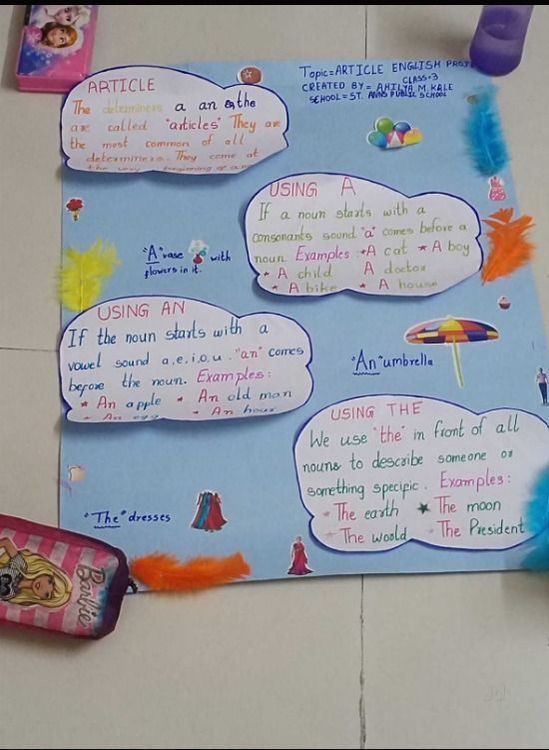 Topic=ARTICLE ENGLISH
CLASS=3
CREATED BY= AHILYA M. KALE
SCHOOL=ST. ANNS PUBLIC SCHOOL
ARTICLE
The determiners a an & the
are called "articles" They are
the most common of all
determiners. They come at
the very beginning of a
USING A
If a noun starts with a
consonants sound "a" comes before a
noun Examples : * A cat * A boy
* A child A doctor
* A bike * A house
"A" vase with
flowers in it.
USING AN
If the noun starts with a
vowel sound a,e,i,o,u. "an" comes
before the noun. Examples:
* An apple * An old man
* An egg * An hour
"An" umbrella
USING THE
We use "the" in front of all
nouns to describe someone or
something specific. Examples:
* The earth * The moon
* The woold * The President
"The" dresses
Barbie